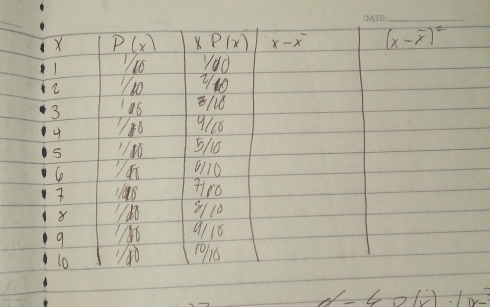 DATE:
x P(x) x P(x) x-x̄ (x-x̄)²
1 1/10 1/10
2 1/10 2/10
3 1/10 3/10
4 1/10 4/10
5 1/10 5/10
6 1/10 6/10
7 1/10 7/10
8 1/10 8/10
9 1/10 9/10
10 1/10 10/10